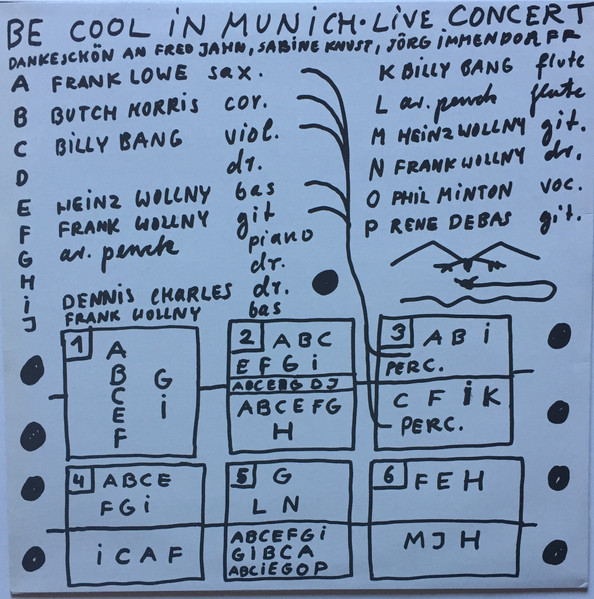 BE COOL iN MUNiCH · LiVE CONCERT
DANKESCHÖN AN FRED JAHN, SABiNE KNUST, JÖRG iMMENDORFF
A FRANK LOWE sax.
B BUTCH MORRiS cor.
C BiLLY BANG viol.
D dr.
E HEiNZ WOLLNY bas
F FRANK WOLLNY git
G ar. penck piano
H dr.
i DENNIS CHARLES dr.
J FRANK WOLLNY bas
K BiLLY BANG flute
L ar. penck flute
M HEiNZ WOLLNY git.
N FRANK WOLLNY dr.
O PHiL MiNTON voc.
P RENE DEBAS git.
1
A
B
C
E
F
G
i
2 ABC
EFGi
ABCEBG DJ
ABCEFG
H
3 ABi
PERC.
C F i K
PERC.
4 ABCE
FGi
iCAF
5 G
L N
ABCEFGi
GiBCA
ABCiEGOP
6 FEH
MJH